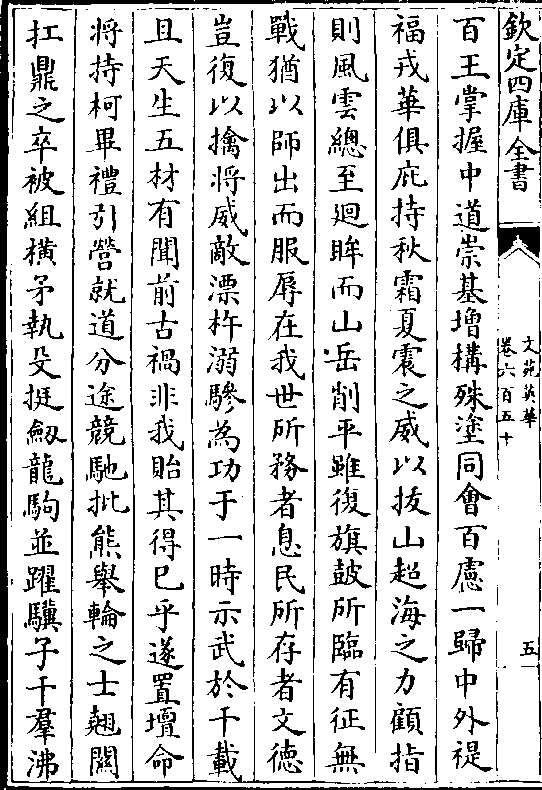 欽定四庫全書
文苑英華
卷六百五十
五
百王掌握中道崇基増構殊塗同會百慮一歸中外禔
福戎華俱庇持秋霜夏震之威以拔山超海之力顧指
則風雲總至迴眸而山岳削平雖復旗鼓所臨有征無
戰猶以師出而服辱在我世所務者息民所存者文徳
豈復以擒將威敵漂杵溺驂為功于一時示武於千載
且天生五材有聞前古禍非我貽其得已乎遂置壇命
將持柯畢禮引營就道分途競馳批熊舉輪之士翹闗
扛鼎之卒被組橫矛執殳挺劒龍駒並躍驥子千羣沸